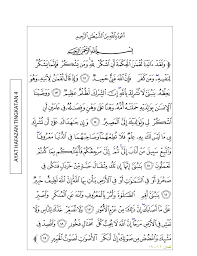 أعوذ بالله من الشيطان الرجيم
بسم الله الرحمن الرحيم
﴿ ولقد ءاتينا لقمن الحكمة أن اشكر لله ومن يشكر فإنما يشكر
لنفسه ومن كفر فإن الله غني حميد ١٢ وإذ قال لقمن لابنه وهو
يعظه يبني لا تشرك بالله إن الشرك لظلم عظيم ١٣ ووصينا
الإنسن بولديه حملته أمه وهنا على وهن وفصله في عامين أن
اشكر لي ولولديك إلي المصير ١٤ وإن جهداك على أن تشرك
بي ما ليس لك به علم فلا تطعهما وصاحبهما في الدنيا معروفا
واتبع سبيل من أناب إلي ثم إلي مرجعكم فأنبئكم بما كنتم
تعملون ١٥ يبني إنها إن تك مثقال حبة من خردل فتكن في
صخرة أو في السموت أو في الأرض يأت بها الله إن الله لطيف خبير
١٦ يبني أقم الصلوة وأمر بالمعروف وانه عن المنكر واصبر
على ما أصابك إن ذلك من عزم الأمور ١٧ ولا تصعر خدك للناس ولا
تمش في الأرض مرحا إن الله لا يحب كل مختال فخور ١٨ واقصد في
مشيك واغضض من صوتك إن أنكر الأصوت لصوت الحمير ١٩ ﴾
AYAT HAFAZAN TINGKATAN 4